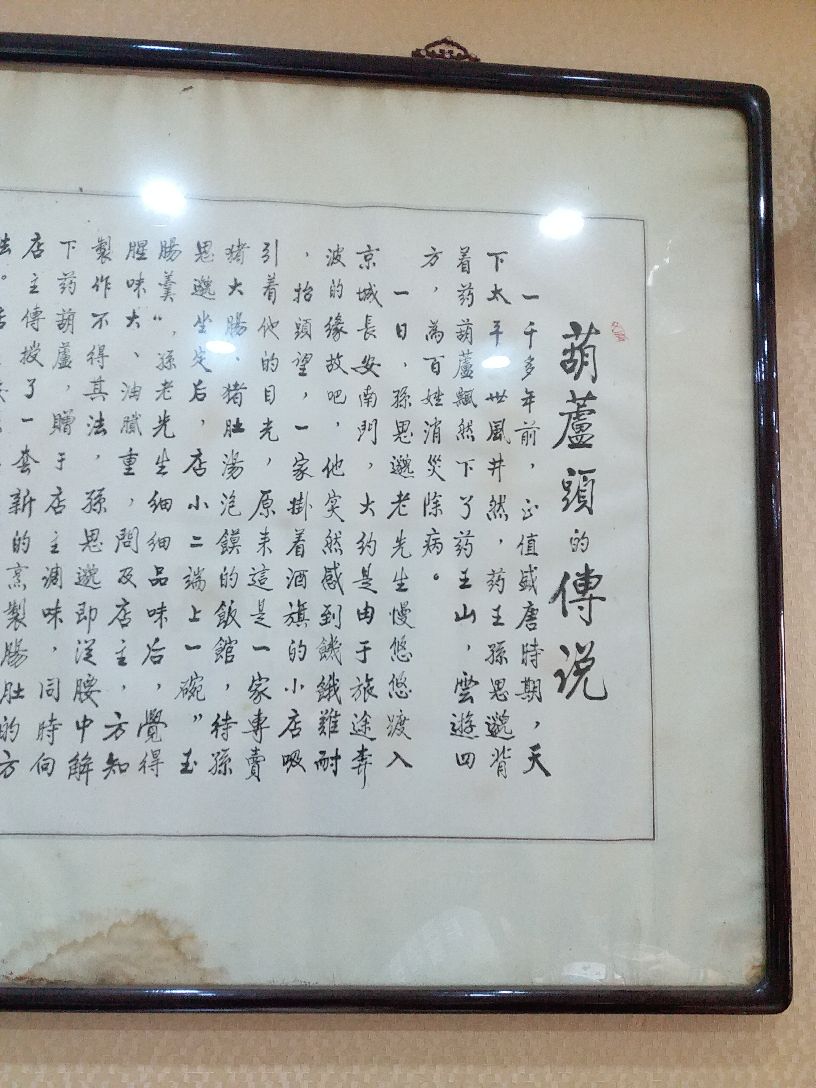 葫蘆頭的傳说
一千多年前，正值盛唐時期，天
下太平，世風井然，药王孫思邈背
着药葫蘆飄然下了药王山，雲遊四
方，為百姓消災除病。
一日、孫思邈老先生慢悠悠渡入
京城長安南門，大约是由于旅途奔
波的缘故吧，他突然感到饑餓難耐
，抬頭望，一家掛着酒旗的小店吸
引着他的目光，原来這是一家專賣
猪大腸、猪肚湯泡饃的飯館，待孫
思邈坐定后，店小二端上一碗"玉
腸羹"，孫老先生细细品味后，覺得
腥味大、油腻重，問及店主，方知
製作不得其法，孫思邈即從腰中解
下药葫蘆，贈于店主调味，同時向
店主傳授了一套新的烹製腸肚的方
法。